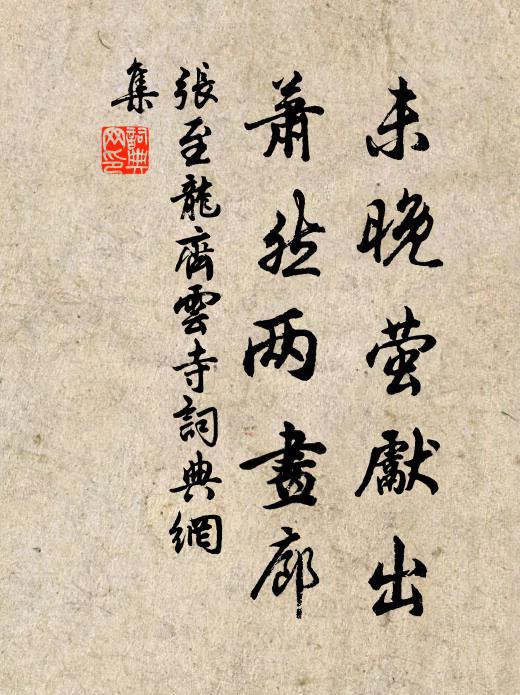 未晚萤獻出
蕭然两畫廊
張至龍齊雲寺詞典網
集
詞典网印